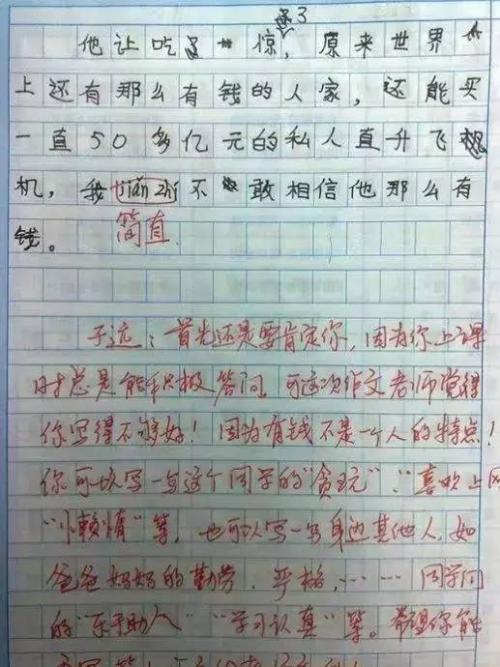 还3
他让吃了一惊，原来世界
上还有那么有钱的人家，还能买
一直50多亿元的私人直升飞
机，我jiǎn zhí不敢相信他那么有
钱。
简直
于远：首先还是要肯定你，因为你上课
时总是能积极答问，可这次作文老师觉得
你写得不够好！因为有钱不是一个人的特点！
你可以写一写这个同学的"贪玩"、"喜欢上网
"小赖情"等，也可以写一写身边其他人，如
爸爸妈妈的勤劳、严格，……同学间
的"乐于助人""学习认真"等。希望你能